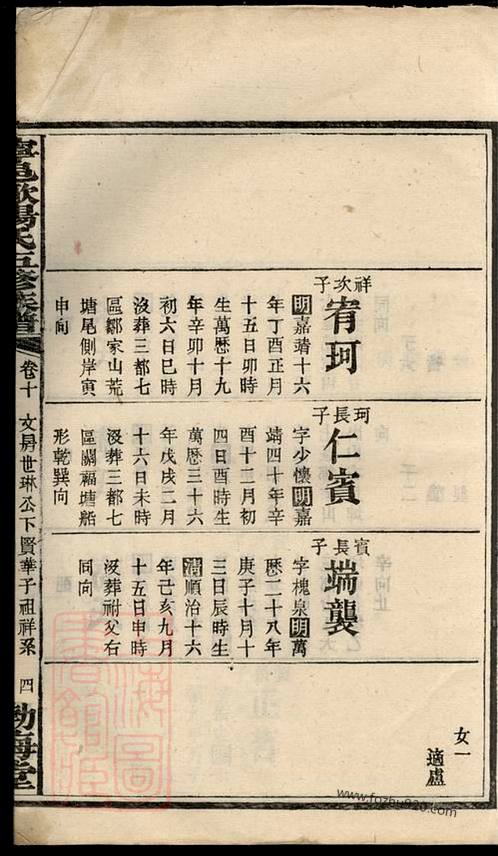 祥次子
宥珂
明嘉靖十六
年丁酉正月
十五日卯時
生萬歷十九
年辛卯十月
初六日巳時
沒葬三都七
區鄒家山荒
塘尾側岸寅
申向
珂長子
仁賓
字少懷明嘉
靖四十年辛
酉十二月初
四日酉時生
萬歷三十六
年戊戌二月
十六日未時
沒葬三都七
區關福塘船
形乾巽向
賓長子
端襲
字槐泉明萬
歷二十八年
庚子十月十
三日辰時生
清順治十六
年己亥九月
十五日申時
沒葬祔父右
同向
女一
適盧
寧邑歐陽氏五修族譜
卷十
文房世琳公下賢華子祖祥系
四
渤海堂
www.fozhu920.com